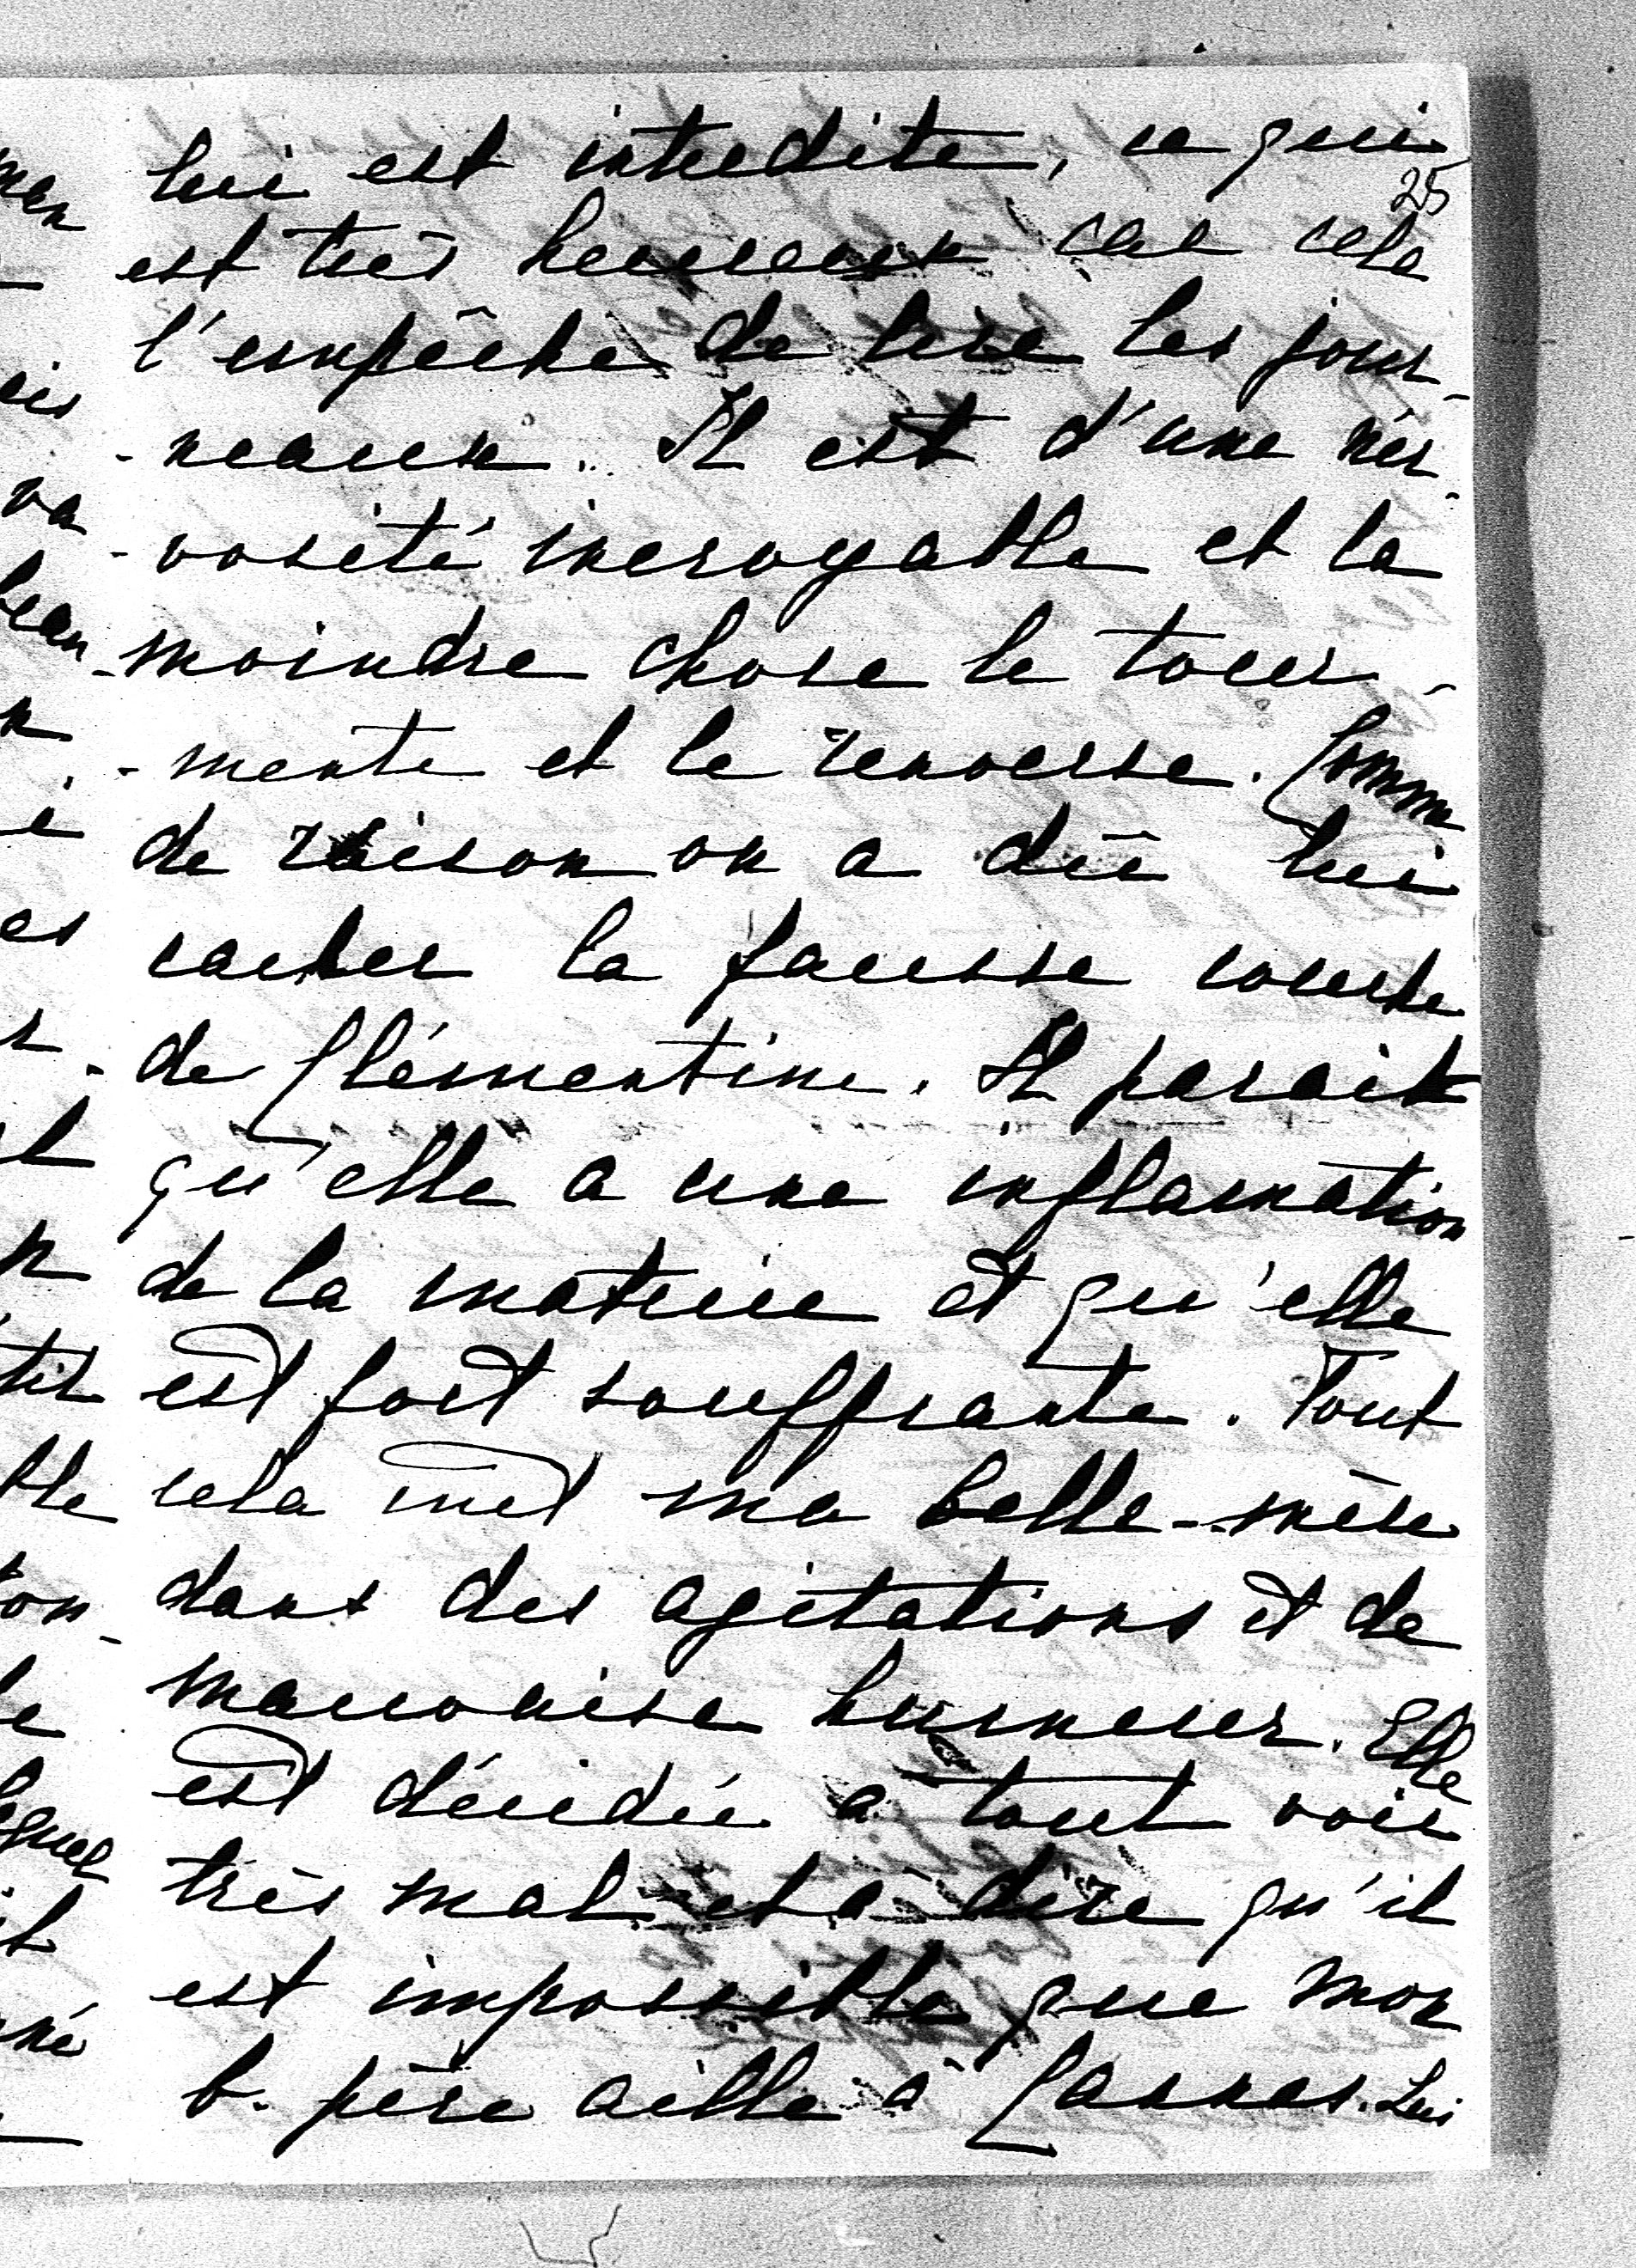 lui est interdite, ce qui
25
est très heureux car cela
l'empêche de lire les jour-
-neaux. Il est d'une ner-
-vosité incroyable et la
moindre chose le tour-
-mente et le renverse. Comme
de raison on a dû lui
cacher la fausse couche
de Clémentine. Il parait
qu'elle a une inflamation
de la matrice et qu'elle
est fort souffrante. Tout
cela met ma belle-mère
dans des agitations et de
mauvaise humeur. Elle
est décidée à tout voir
très mal et à dire qu'il
est impossible que mon
b. père aille à Cannes. Lui